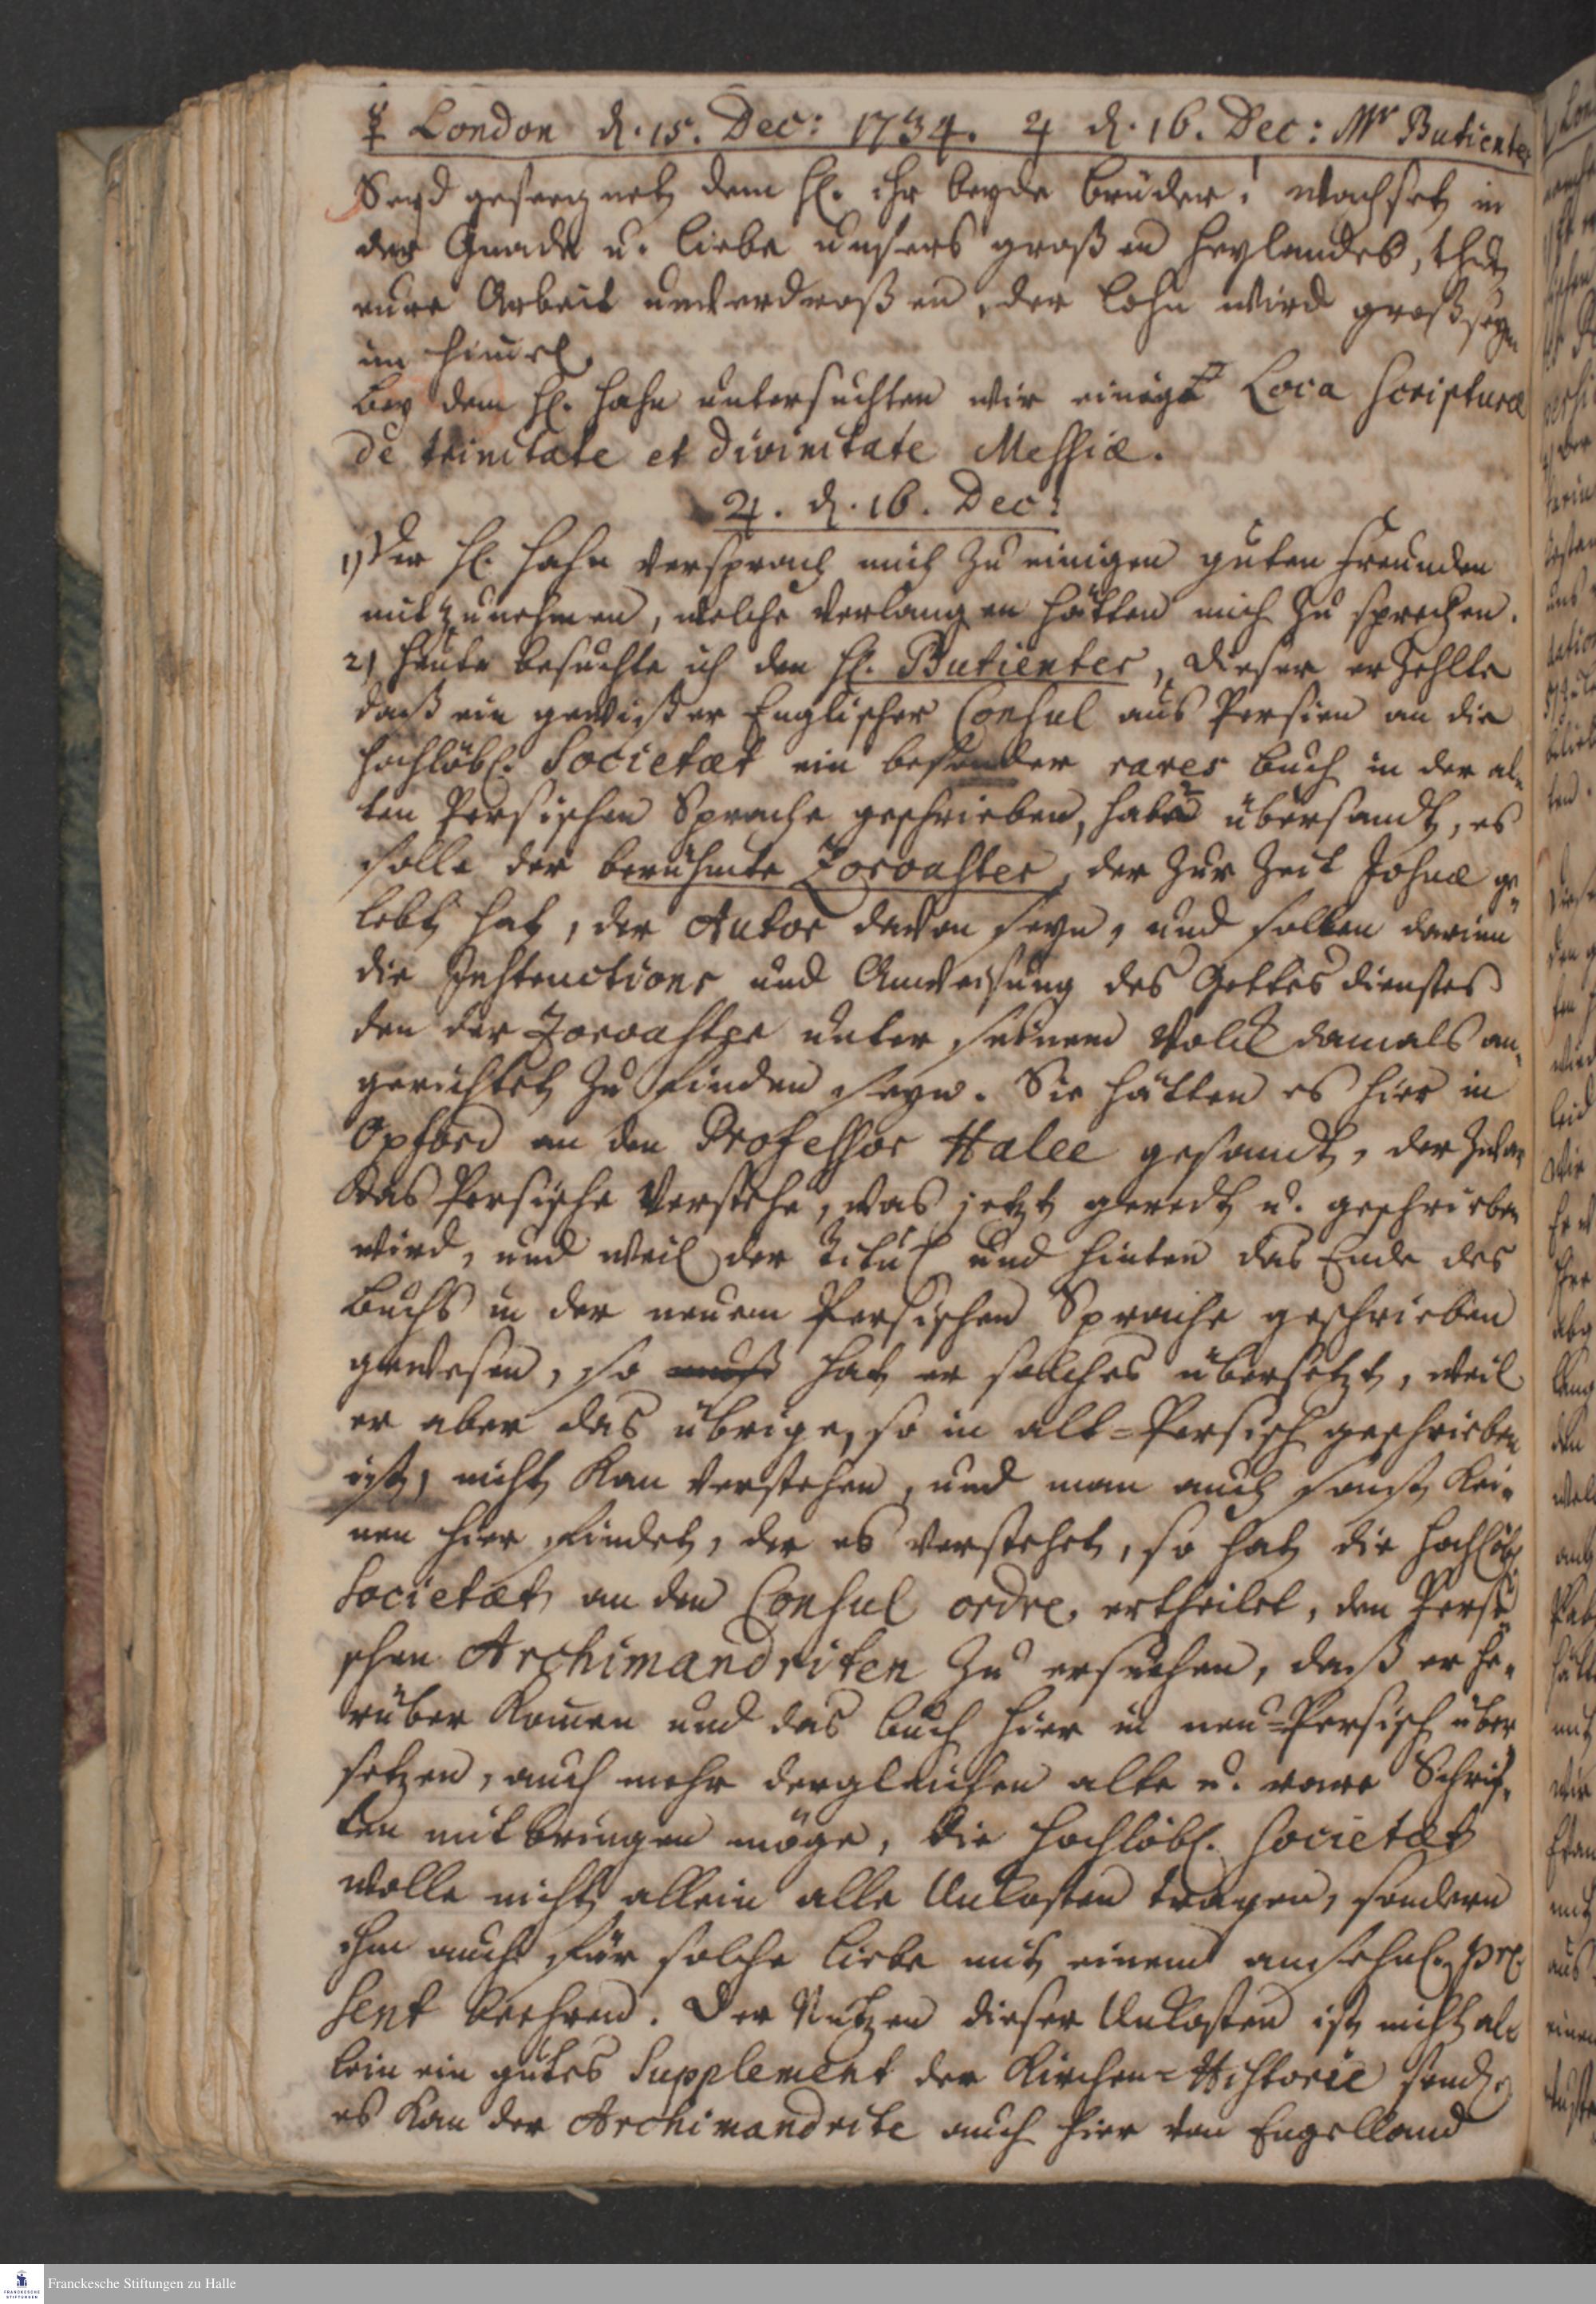 ☿ London d. 15. Dec: 1734. ♃ d. 16. Dec: Mr Butienter
Seyd gesegnet dem H. ihr beyde brüder! wachset in
der Gnade u. liebe unsers großen Heylandes, thut
eure Arbeit unverdroßen, der lohn wird groß seyn
im Himel.
bey dem H. Hahn untersuchten wir einige Loca Scripturæ
de trinitate et divinitate Messiæ.
♃. d. 16. Dec:
1) Der H. Hahn versprach mich zu einigen guten Freunden
mitzunehmen, welche verlangen hätten mich zu sprechen.
2) Heute besuchte ich den H. Butienter, dieser erzehlte
daß ein gewißer Englischer Consul aus Persien an die
hochlöbl. Societæt ein besonder rares buch in der al-
ten Persischen Sprache geschrieben, habe übersandt, es
solle der berühmte Zoroaster, der zur Zeit Josuæ ge-
lebt hat, der Autor davon seyn, und sollen darinn
die Instructions und Anweisung des Gottesdienstes
den der Zoroastre unter seinem Volck damals an-
gerichtet zu finden seyn. Sie hätten es hier in
Oxford an den Professor Halee gesandt, der zwar
das Persische verstehe, was jetzt geredt u. geschrieben
wird, und weil der Titul und hinten das Ende des
buchs in der neuen Persischen Sprache geschrieben
gewesen, so hat er solches übersetzt, weil
er aber das übrige, so in alt-Persisch geschrieben
ist, nicht kan verstehen, und man auch sonst kei-
nen hier findet, der es verstehet, so hat die hochlöbl.
Societæt an den Consul ordre ertheilet, den Persi-
schen Archimandriten zu ersuchen, daß er he-
rüber komen und das buch hier in neu-Persisch über
setzen, auch mehr dergleichen alte u. rare Schrif-
ten mitbringen möge, die hochlöbl. Societæt
wolle nicht allein alle Unkosten tragen, sondern
ihm auch für solche liebe mit einem ansehnl. Præ-
sent beehren. Der Nutzen dieser Unkosten ist nicht al-
lein ein gutes Supplement der Kirchen-Historie sond.
es kan der Archimandrite auch hier von Engelland
Franckesche Stiftungen zu Halle